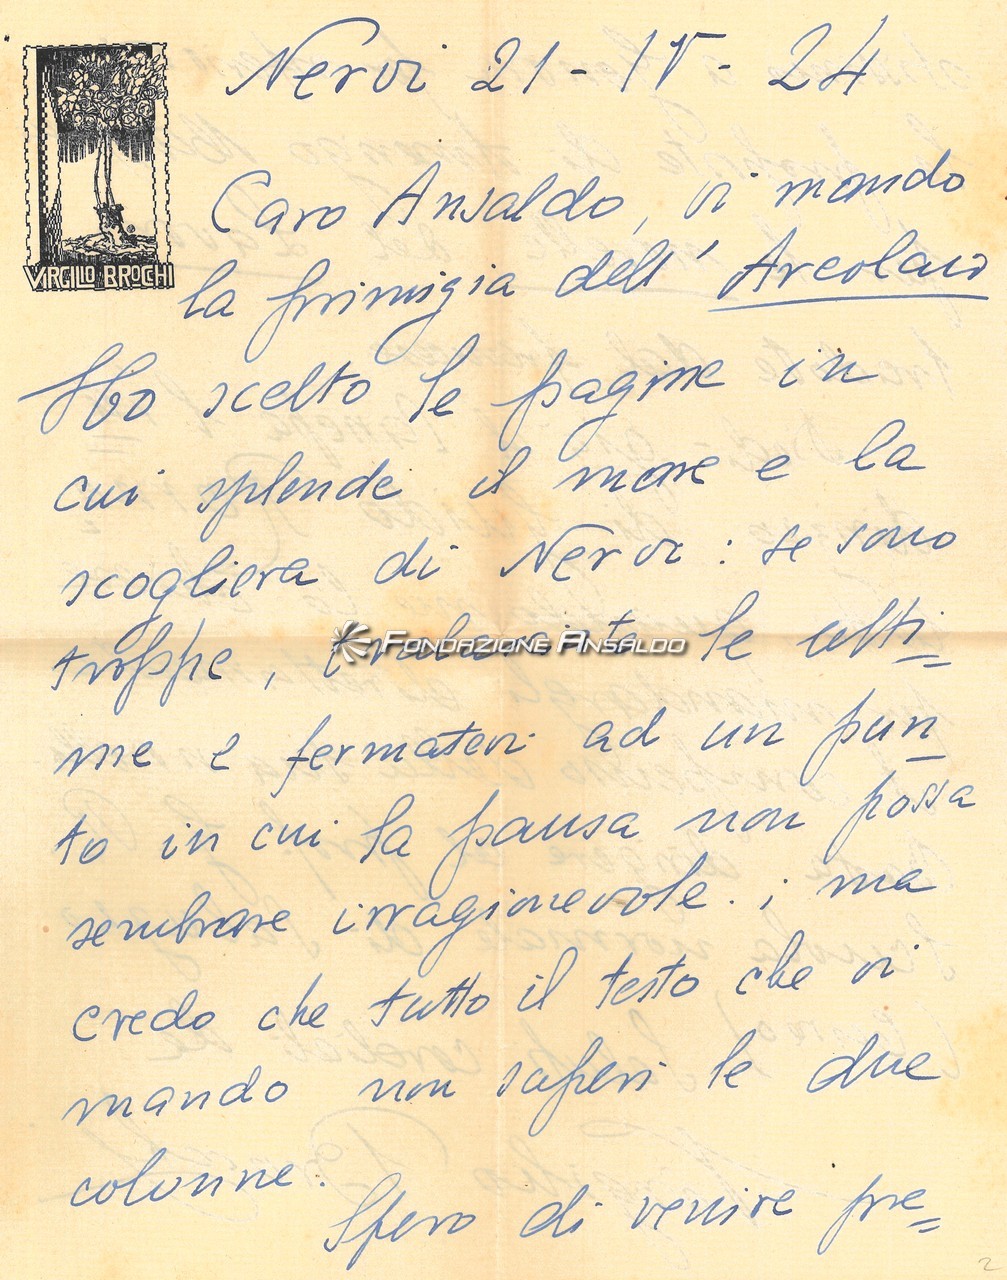 Nervi 21-IV-24
VIRGILIO BROCCHI
Caro Ansaldo, vi mando
la primizia dell' Arcolaio
Ho scelto le pagine in
cui splende il mare e la
scogliera di Nervi: se sono
troppe, tralasciate le ulti=
FONDAZIONE ANSALDO
me e fermatevi ad un pun-
to in cui la pausa non possa
sembrare irragionevole.; ma
credo che tutto il testo che vi
mando non superi le due
colonne.
Spero di venire pre=
2